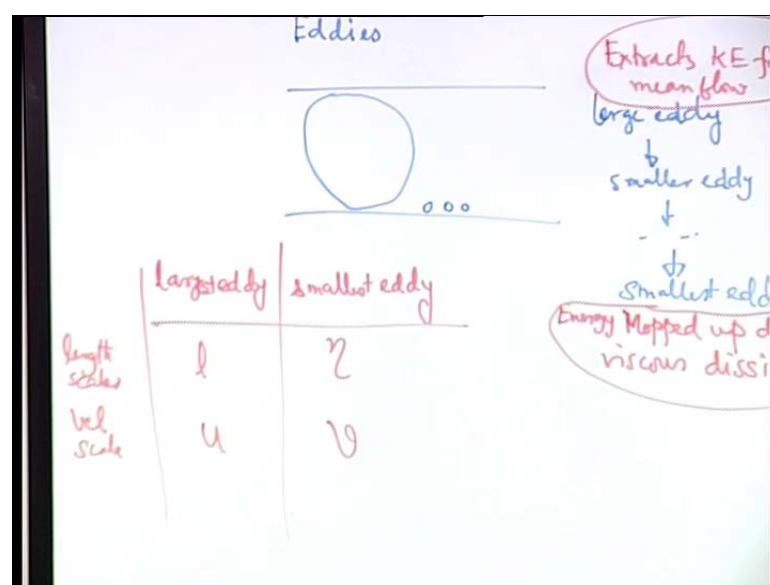 Eddies
Extracts KE f
mean flow
large eddy
smaller eddy
smallest edd
Energy Mopped up d
viscous dissi
largest eddy smallest eddy
length scales l η
vel scale u υ